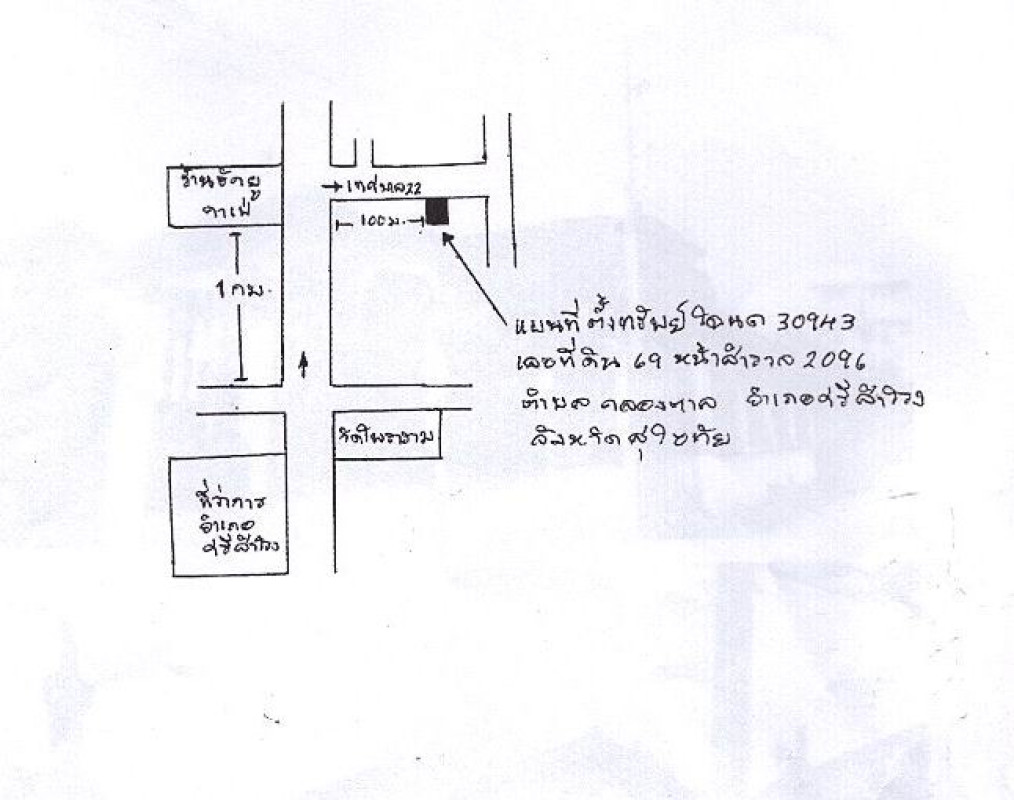 ร้านฮักยู
คาเฟ่
→ เทศบาล 22
100 ม.
1 กม.
แผนที่ตั้งทรัพย์ โฉนด 30943
เลขที่ดิน 69 หน้าสำรวจ 2096
ตำบล คลองตาล อำเภอศรีสำโรง
จังหวัด สุโขทัย
วัดโพธาราม
ที่ว่าการ
อำเภอ
ศรีสำโรง